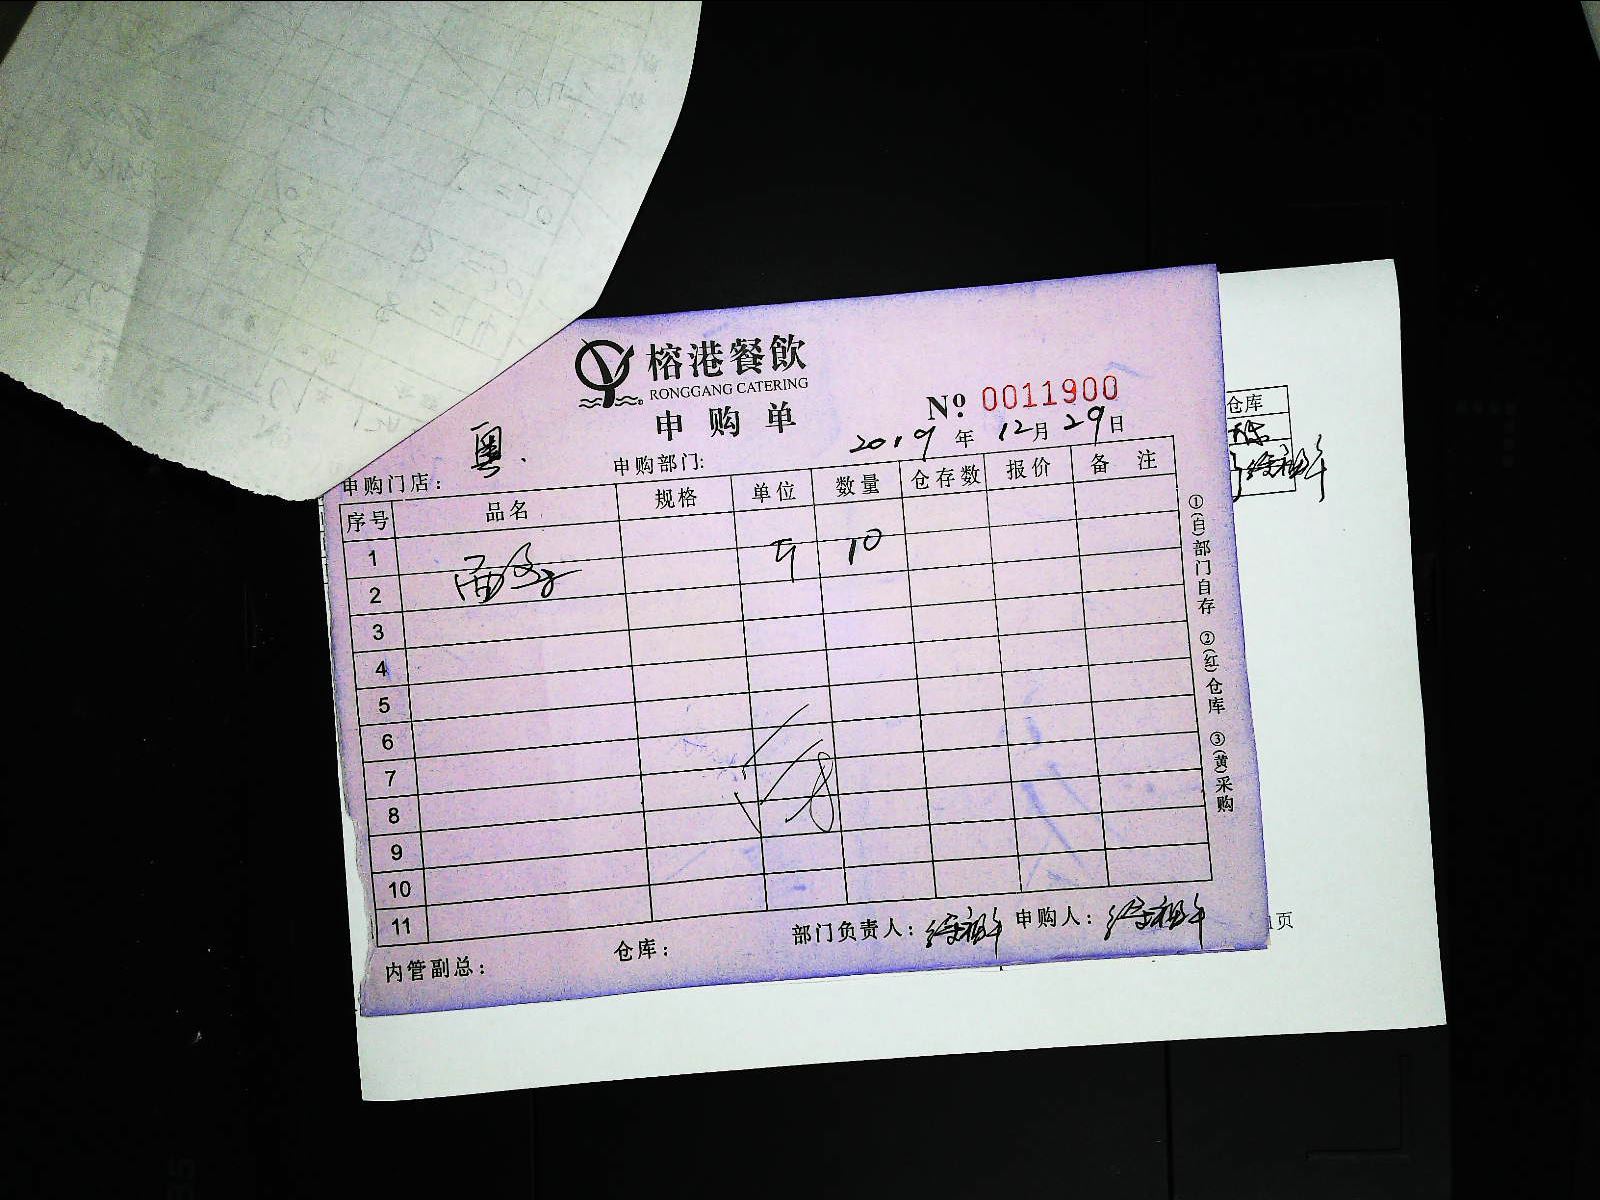 榕港餐飲
RONGGANG CATERING
申购单
№ 0011900
2019年12月29日
申购门店：粤.
申购部门:
序号 品名 规格 单位 数量 仓存数 报价 备注
1
2
斤 10
3
4
5
6
7
8
9
10
11
内管副总：
仓库：
部门负责人：
申购人：
①(白)部门自存 ②(红)仓库 ③(黄)采购
仓库
页